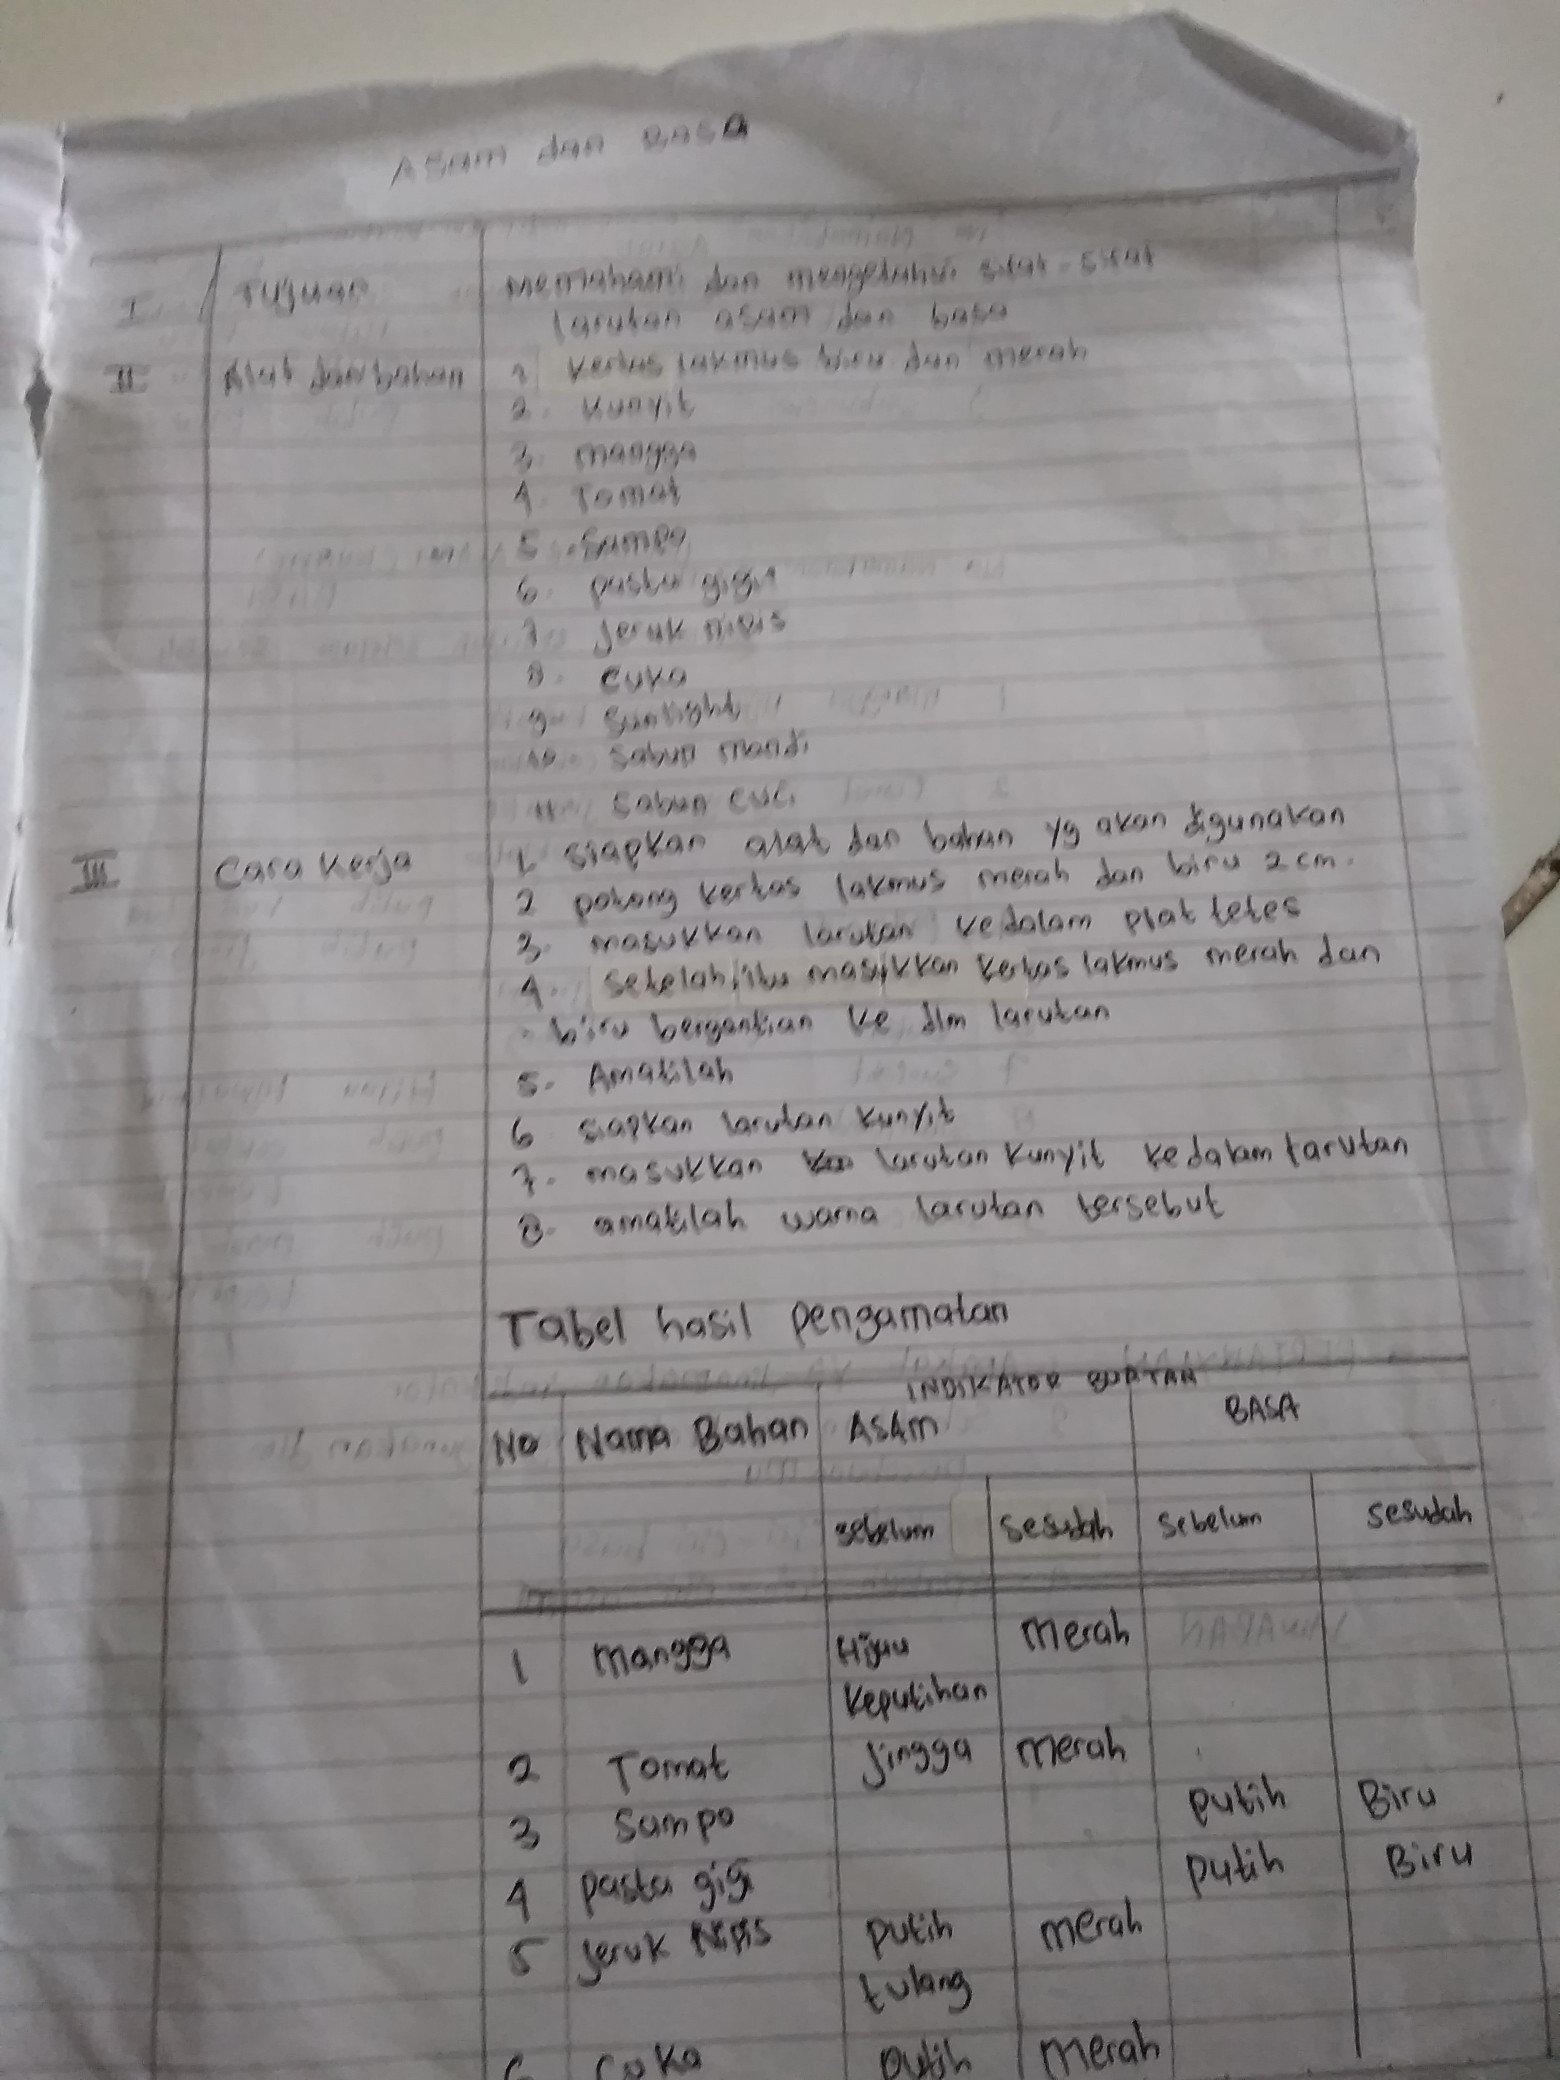 Asam dan BASA
I Tujuan Memahami dan mengetahui sifat-sifat
larutan asam dan basa
II Alat dan bahan 1 kertas lakmus biru dan merah
2. Kunyit
3. mangga
4. Tomat
5. Sampo
6. pasta gigi
7 Jeruk nipis
8. cuka
9. Sunlight
10. Sabun mandi
11. Sabun cuci
III Cara Kerja 1. siapkan alat dan bahan yg akan digunakan
2 potong kertas lakmus merah dan biru 2 cm.
3. masukkan larutan kedalam plat tetes
4. setelah itu masukkan kertas lakmus merah dan
biru bergantian ke dlm larutan
5. Amatilah
6 siapkan larutan kunyit
7. masukkan larutan kunyit kedalam larutan
8. amatilah warna larutan tersebut
Tabel hasil pengamatan
INDIKATOR BUATAN
No Nama Bahan ASAm BASA
sebelum sesudah sebelum sesudah
1 mangga Hijau merah
keputihan
2 Tomat Jingga merah
3 Sampo putih Biru
4 pasta gigi putih Biru
5 Jeruk Nipis putih merah
tulang
6 Cuka putih merah